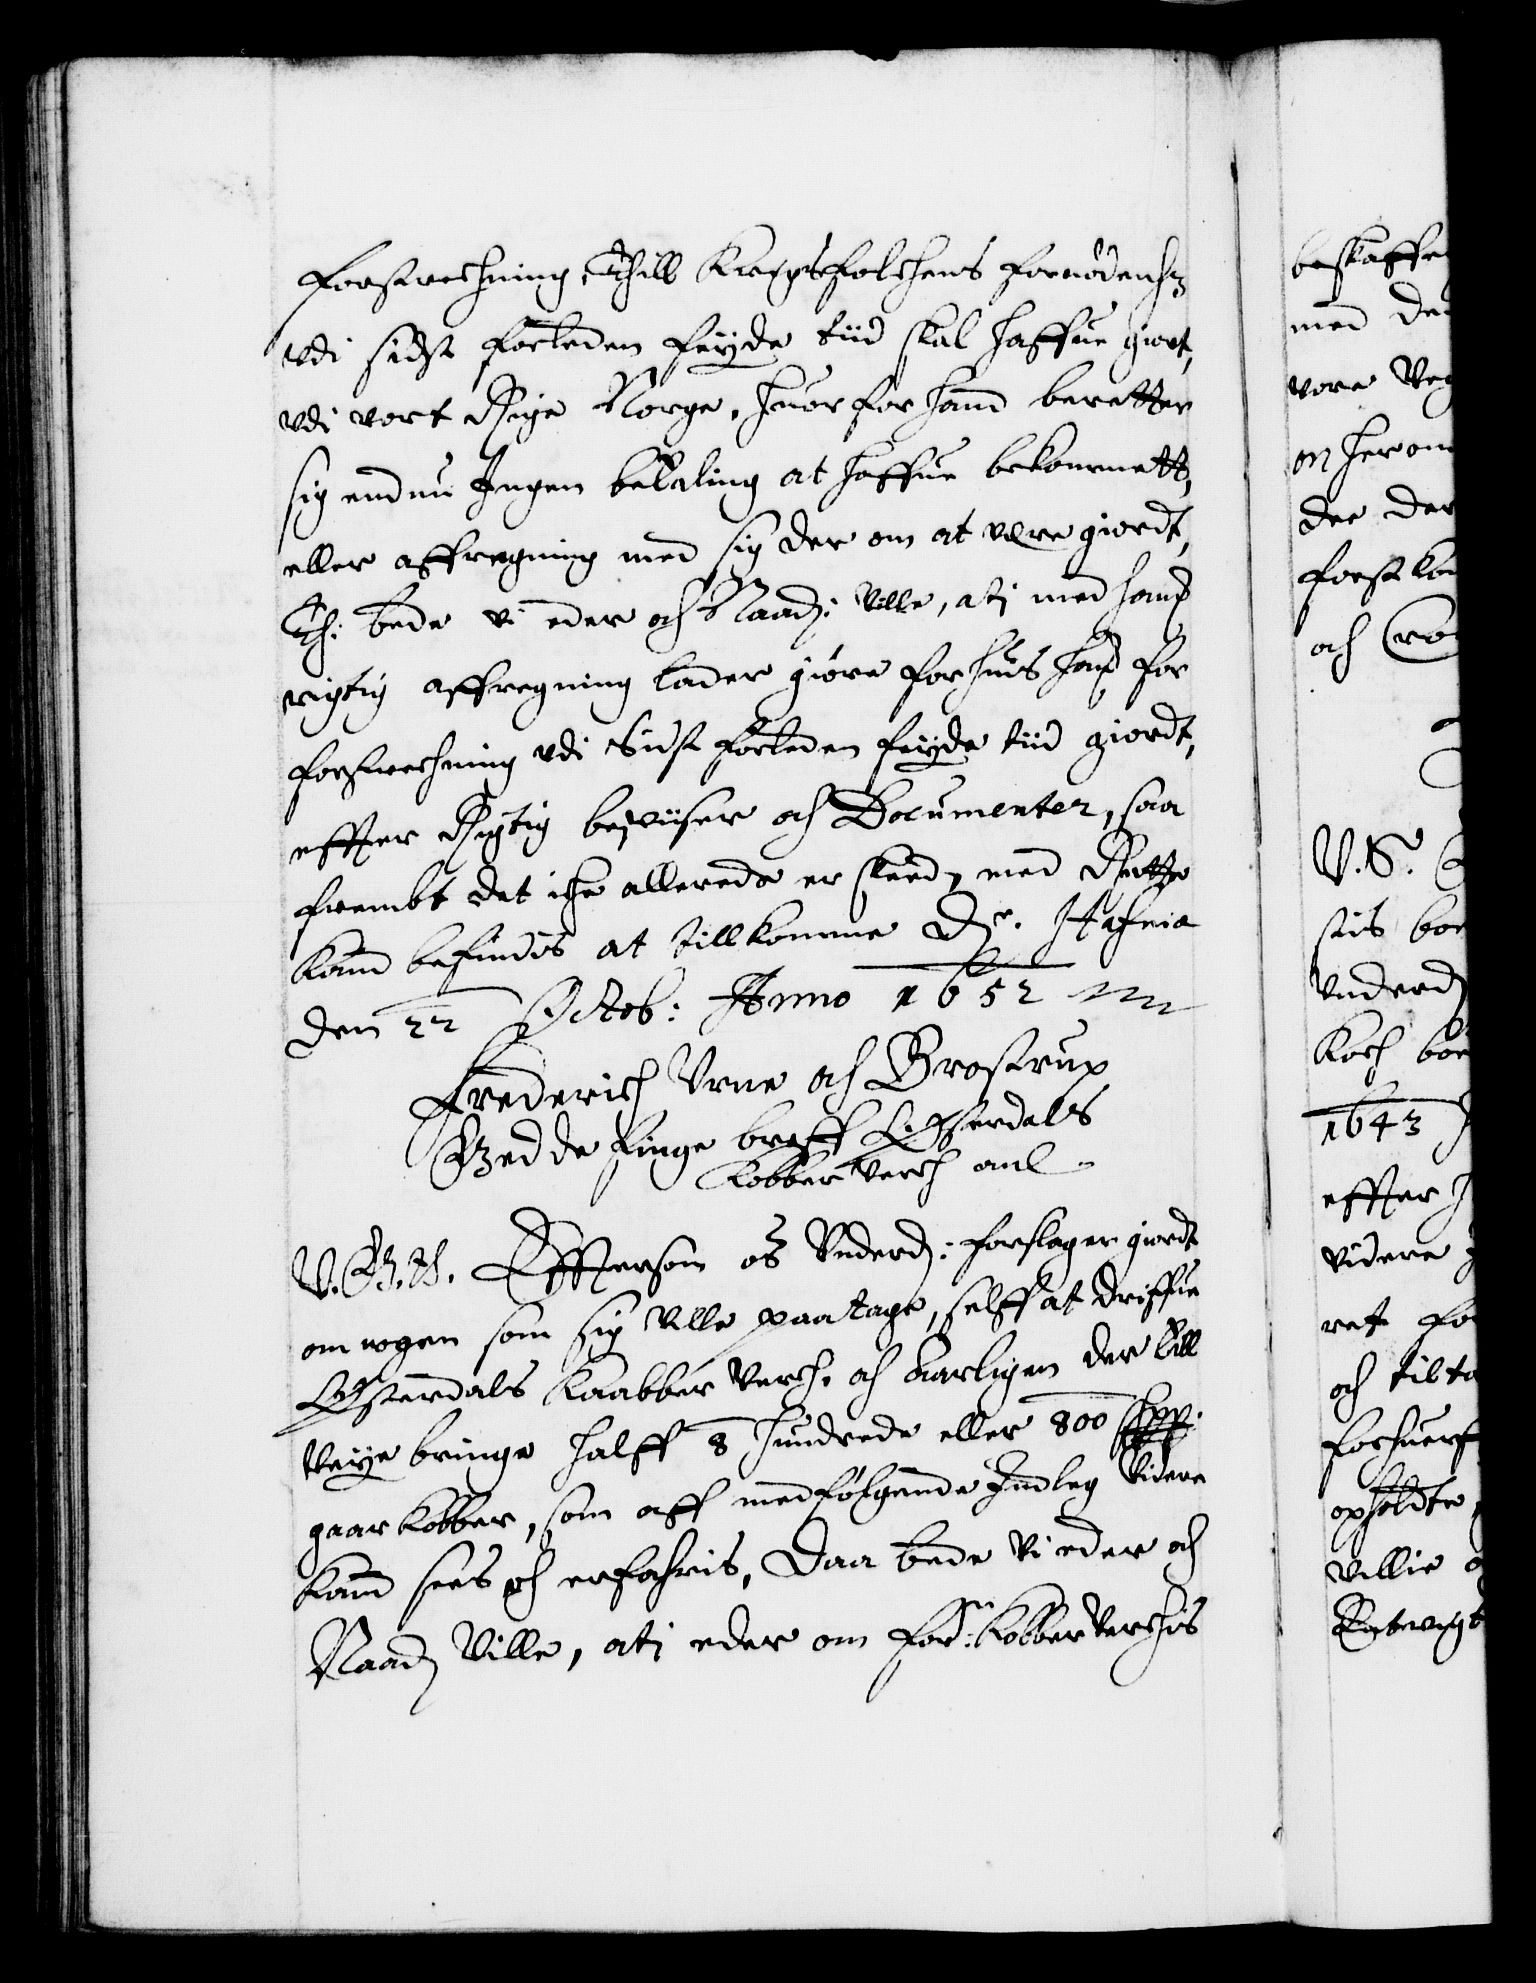 forstrechning, Thill Krigsfolchens fornødenhz
vdi sidst forleden feyde tiid skal haffue giort,
vdi vort Rige Norge, huorfor hand beretter
sig endnu Ingen betaling at haffue bekommett,
eller affregning med sig der om at være giordt,
Th: bede vi eder och Naadi: ville, ati med hans
rigtig affregning lader giøre for huis hans for
forstrechning vdi Sidst forleden feyde tiid giordt,
effter Rigtig beviiser och Documenter, saa
frembt det iche allerede er skeed, med Rette
kand befindis at tillkomme Dr. Hafnia
den 22 Octob: Anno 1652
Frederich Vrne och Brostrup
Gedde finge breff Østerdals
Kobber verch anl.
V. G. T. Effterson os Underd: forslager giordt
om nogen som sig ville paatage, selff at driffue
Østerdals Kaabber Verch, och aarligen der till
veye bringe halff 8 hundrede eller 800
gaarkobber, som aff medfølgende Indleg videre
kand sees och erfahris, Daa bede vi eder och
Naad ville, ati eder om forn: Kobberverchis
beskaffe
med de
vore
on herom
dee der
forst
och
V. S.
siis
Underd
Koch
1643
effter
videre
ret fo
och tilta
forhuerf
opholdte
villie